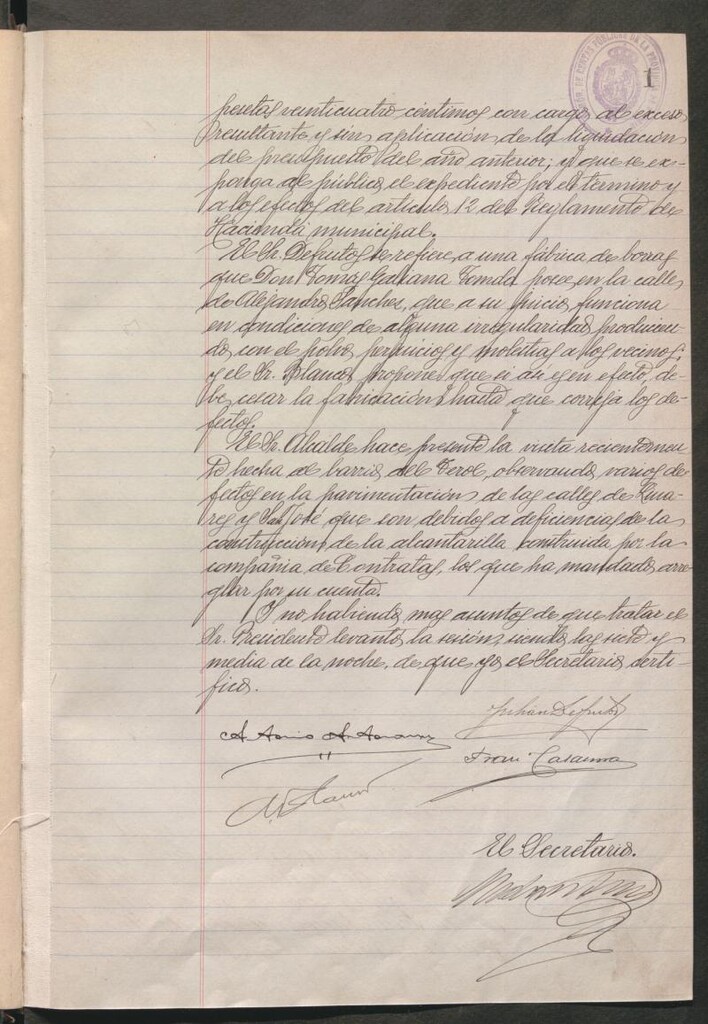 1
pesetas veinticuatro céntimos con cargo al exceso
resultante y sin aplicación de la liquidación
del presupuesto del año anterior; y que se ex-
ponga al público el expediente por el término y
a los efectos del artículo 12 del Reglamento de
Hacienda municipal.
El Sr. Defrutos se refiere a una fábrica de borras
que Don Tomás posee en la calle
de Alejandro Sánchez, que a su juicio funciona
en condiciones de alguna irregularidad producien-
do con el polvo perjuicios y molestias a los vecinos;
y el Sr. Blanco propone que si así es en efecto, de-
be cesar la fabricación hasta que corrija los de-
fectos.
El Sr. Alcalde hace presente la visita recientemen-
te hecha al barrio del Terol, observando varios de-
fectos en la pavimentación de las calles de
y San José que son debidos a deficiencias de la
construcción de la alcantarilla construida por la
compañía de Contratas, los que ha mandado arre-
glar por su cuenta.
Y no habiendo mas asuntos de que tratar el
Sr. Presidente levantó la sesión siendo las siete y
media de la noche, de que yo el Secretario certi-
fico.
Julian Defrutos
Antonio
Casanova
El Secretario.